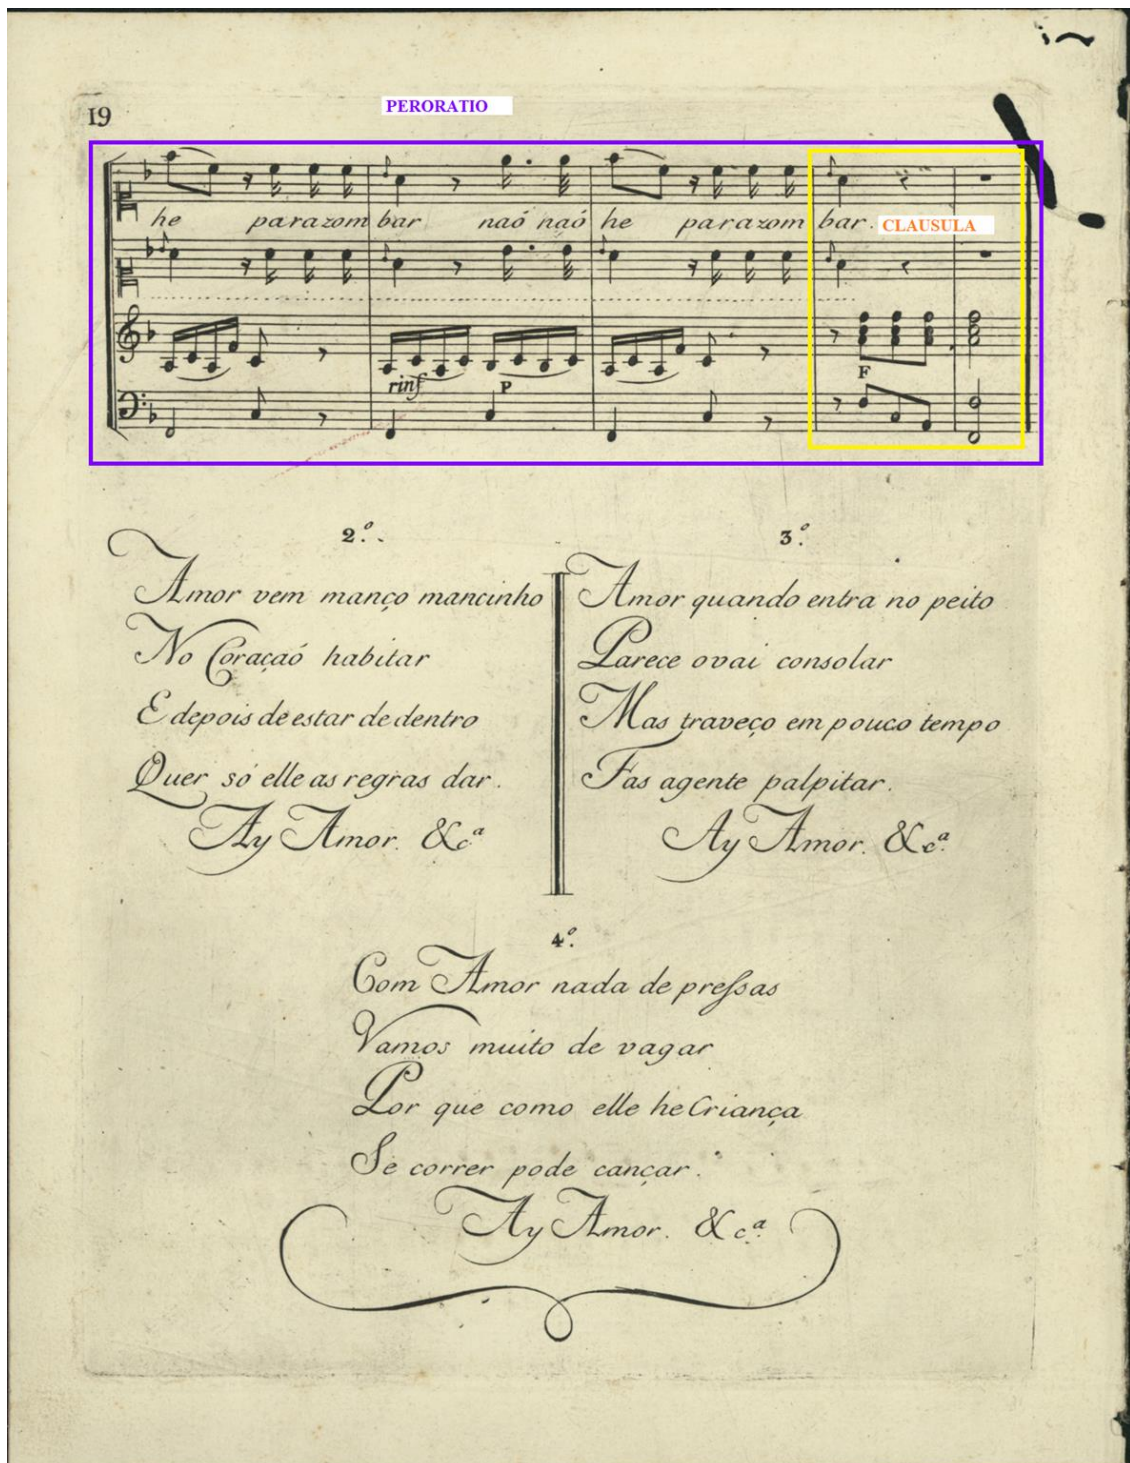 19
PERORATIO
he parazom bar naó naó he parazom bar.
CLAUSULA
rinf P F
2.º
Amor vem manço mancinho
No Coraçaó habitar
E depois de estar de dentro
Quer só elle as regras dar.
Ay Amor. &c.ª
3.º
Amor quando entra no peito
Parece o vai consolar
Mas traveço em pouco tempo
Fas agente palpitar.
Ay Amor. &c.ª
4.º
Com Amor nada de preſsas
Vamos muito de vagar
Por que como elle he Criança
Se correr pode cançar.
Ay Amor. &c.ª